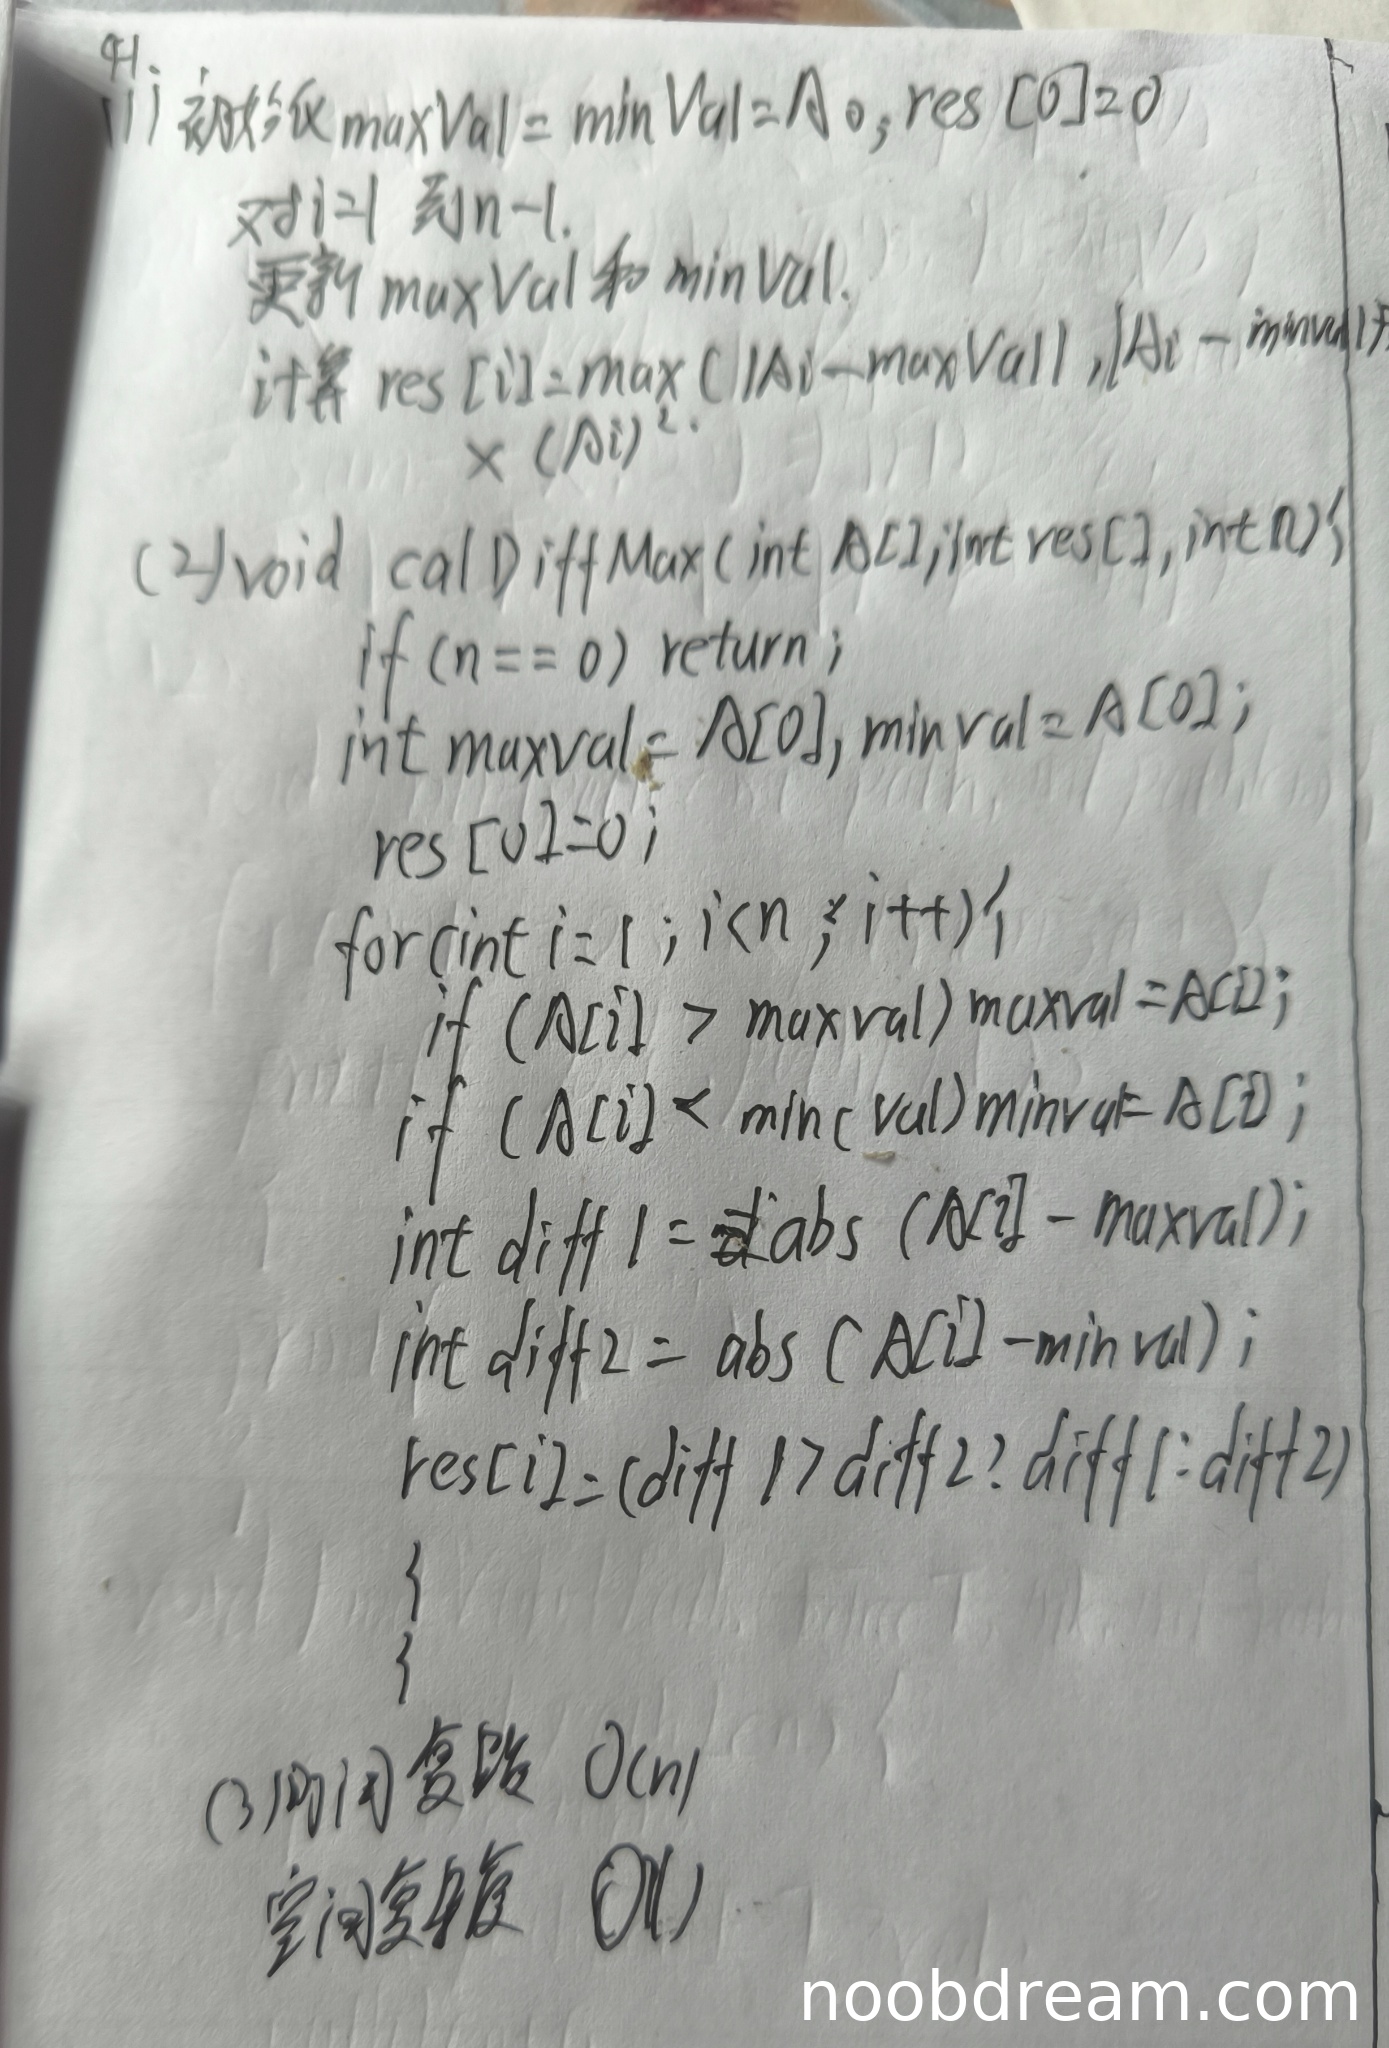 41.
(1) 初始设 maxVal = minVal = A0, res[0]=0
对i=1 到n-1.
更新 maxVal 和 minVal.
计算 res[i]=max(|Ai-maxVal|, |Ai-minval|)
×(Ai)².
(2) void calDiffMax(int A[], int res[], int n){
if (n == 0) return;
int maxval = A[0], minval = A[0];
res[0]=0;
for(int i=1; i<n; i++){
if (A[i] > maxval) maxval = A[i];
if (A[i] < min( val) minval = A[i];
int diff1 = abs (A[i] - maxval);
int diff2 = abs (A[i] - minval);
res[i] = (diff1 > diff2? diff1 : diff2)
}
}
(3) 时间复 O(n)
空间复杂度 O(1)
noobdream.com